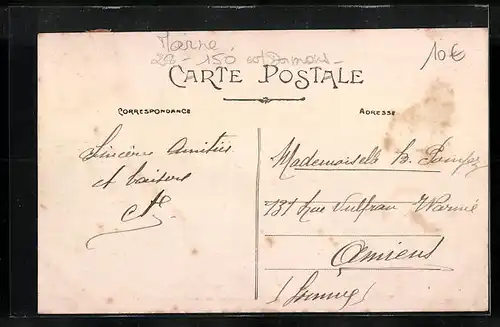 Marne
28 - 150
10€
CARTE POSTALE
CORRESPONDANCE
ADRESSE
Sincères Amitiés
et baisers
Mademoiselle B.
131 Rue Vulfran Warmé
Amiens
(Somme)